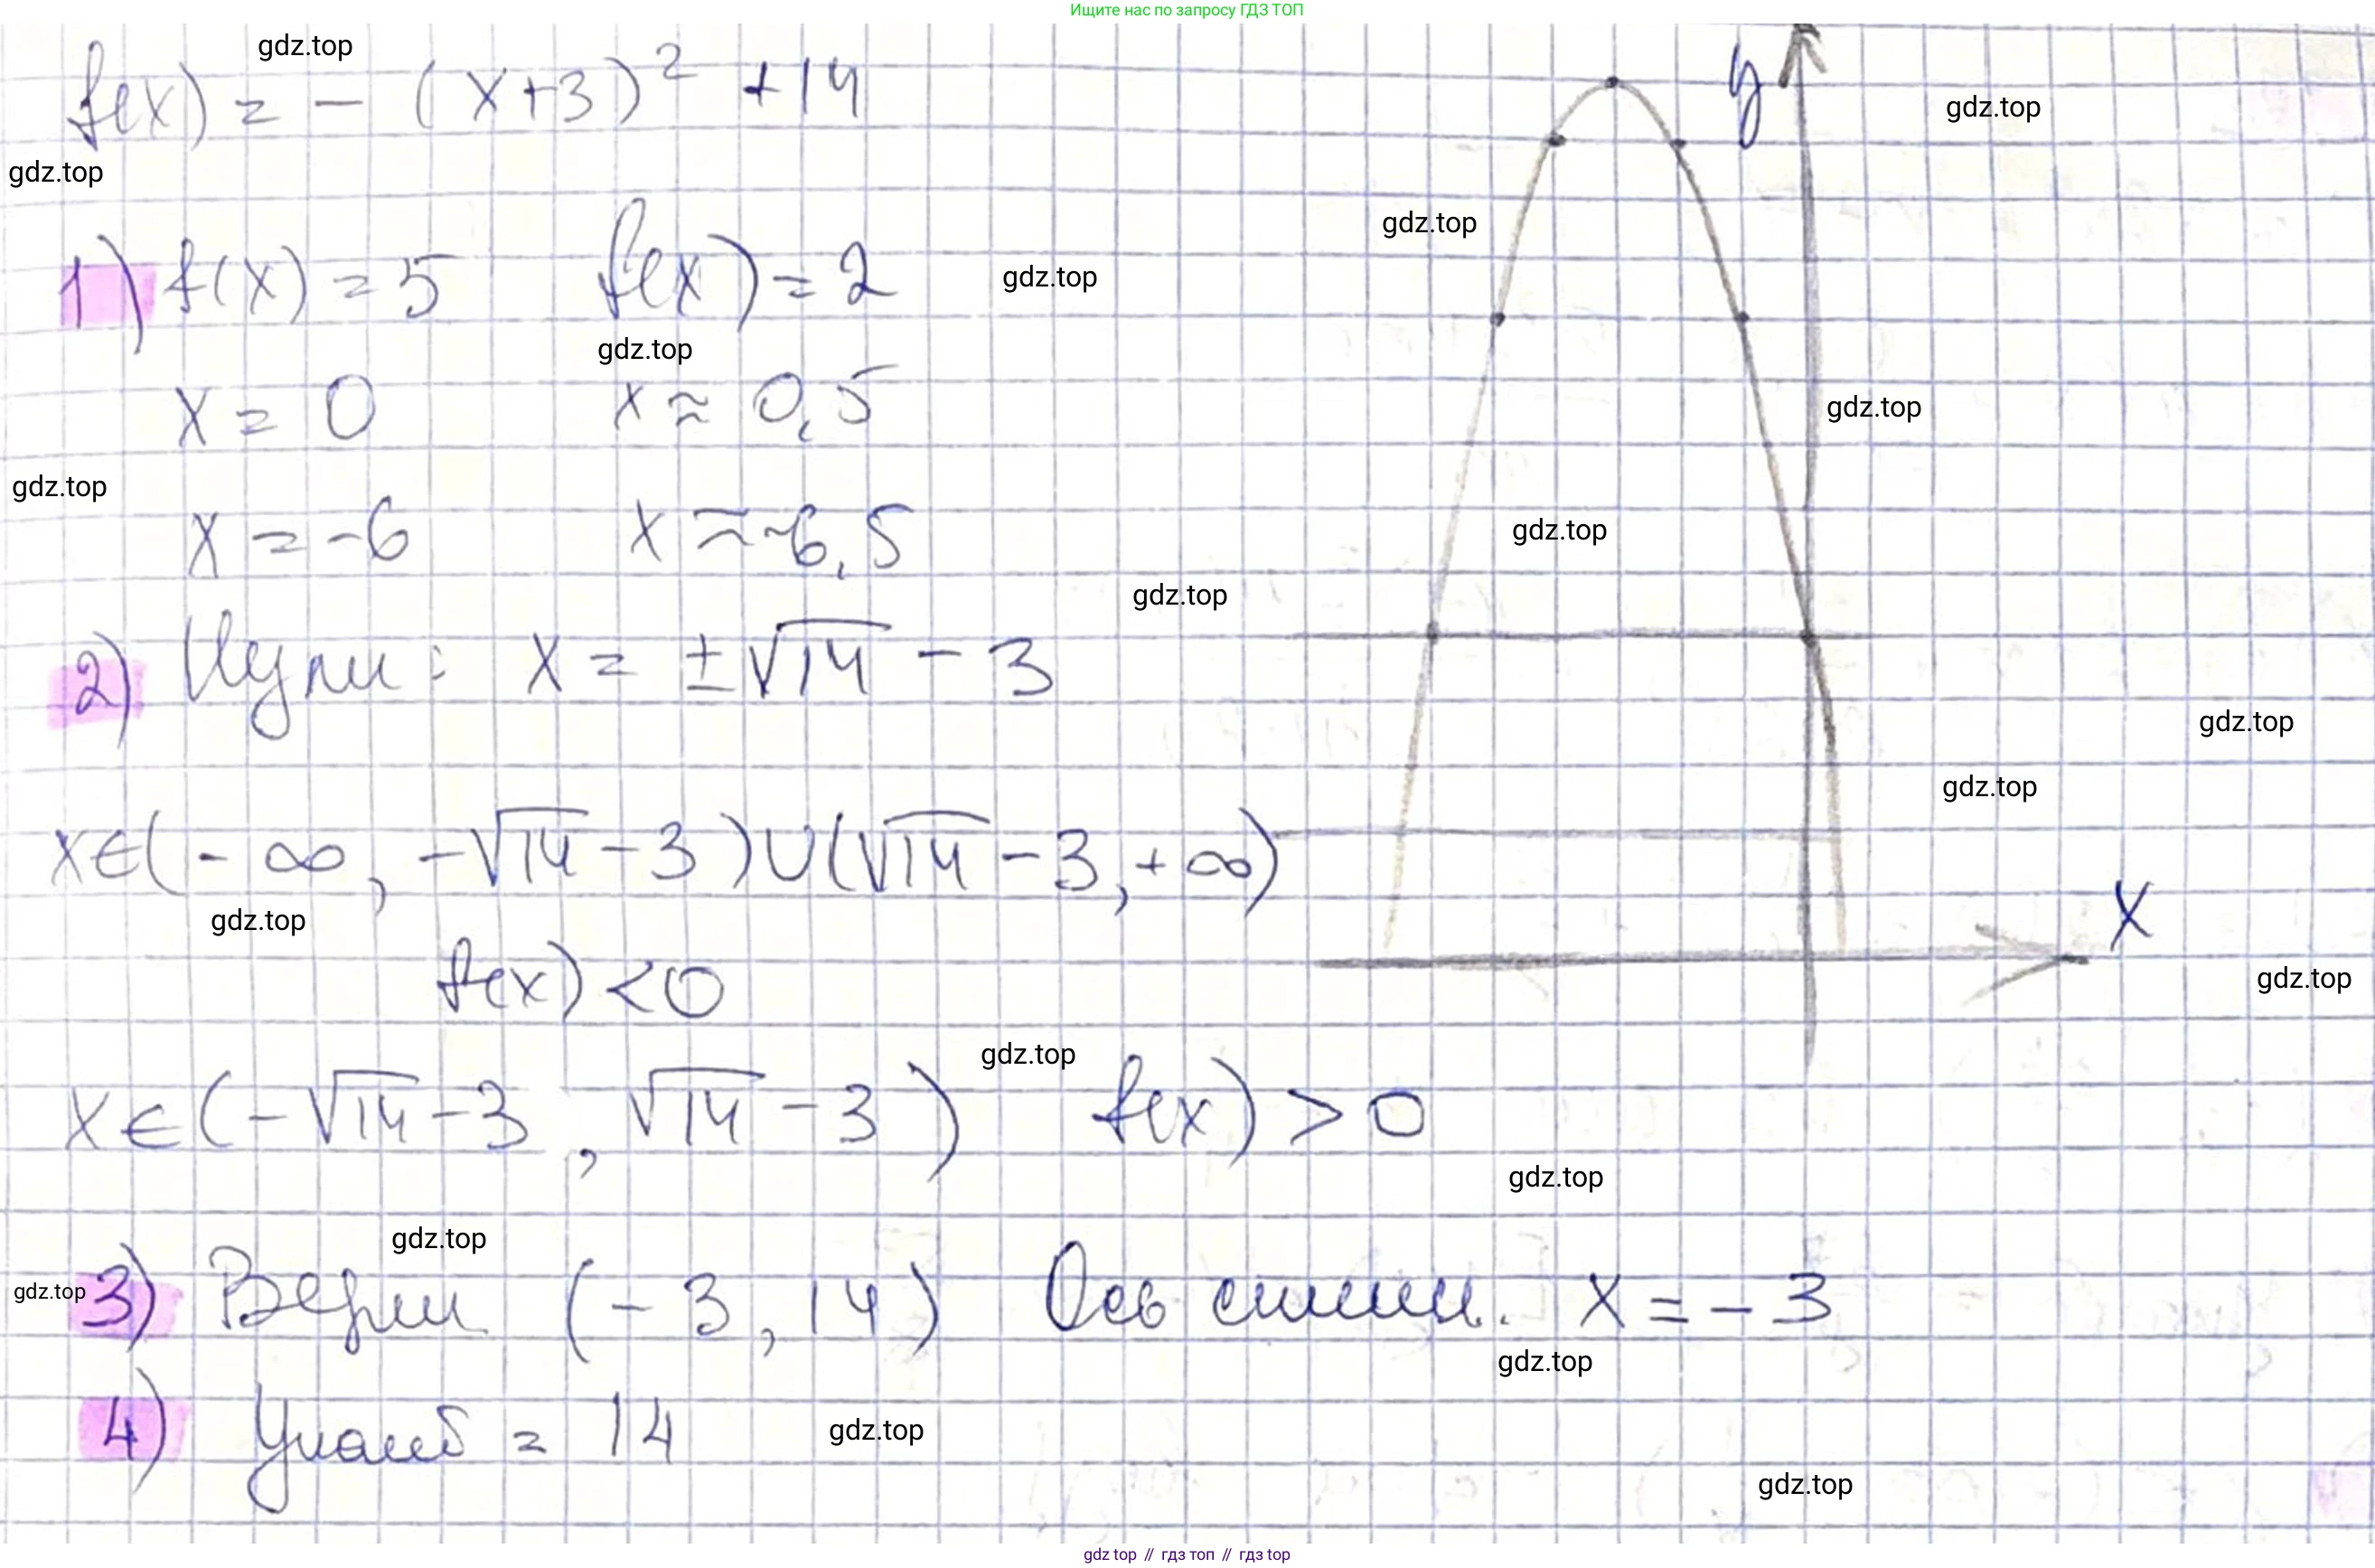 Ищите нас по запросу ГДЗ ТОП
f(x) = - (x+3)² +14
y
gdz.top
gdz.top
gdz.top
gdz.top
1) f(x) = 5 f(x) = 2
gdz.top
gdz.top
x = 0 x ≈ 0,5
gdz.top
gdz.top
x = -6 x ≈ -6,5
gdz.top
gdz.top
2) Нули: x = ±√14 - 3
gdz.top
gdz.top
x∈(-∞, -√14-3)∪(√14-3,+∞)
x
gdz.top
f(x) < 0
gdz.top
gdz.top
x∈(-√14-3, √14-3) f(x) > 0
gdz.top
gdz.top
gdz.top
3) Верш (-3, 14) Ось симм. x = -3
gdz.top
4) yнаиб = 14
gdz.top
gdz.top
gdz top // гдз топ // гдз top